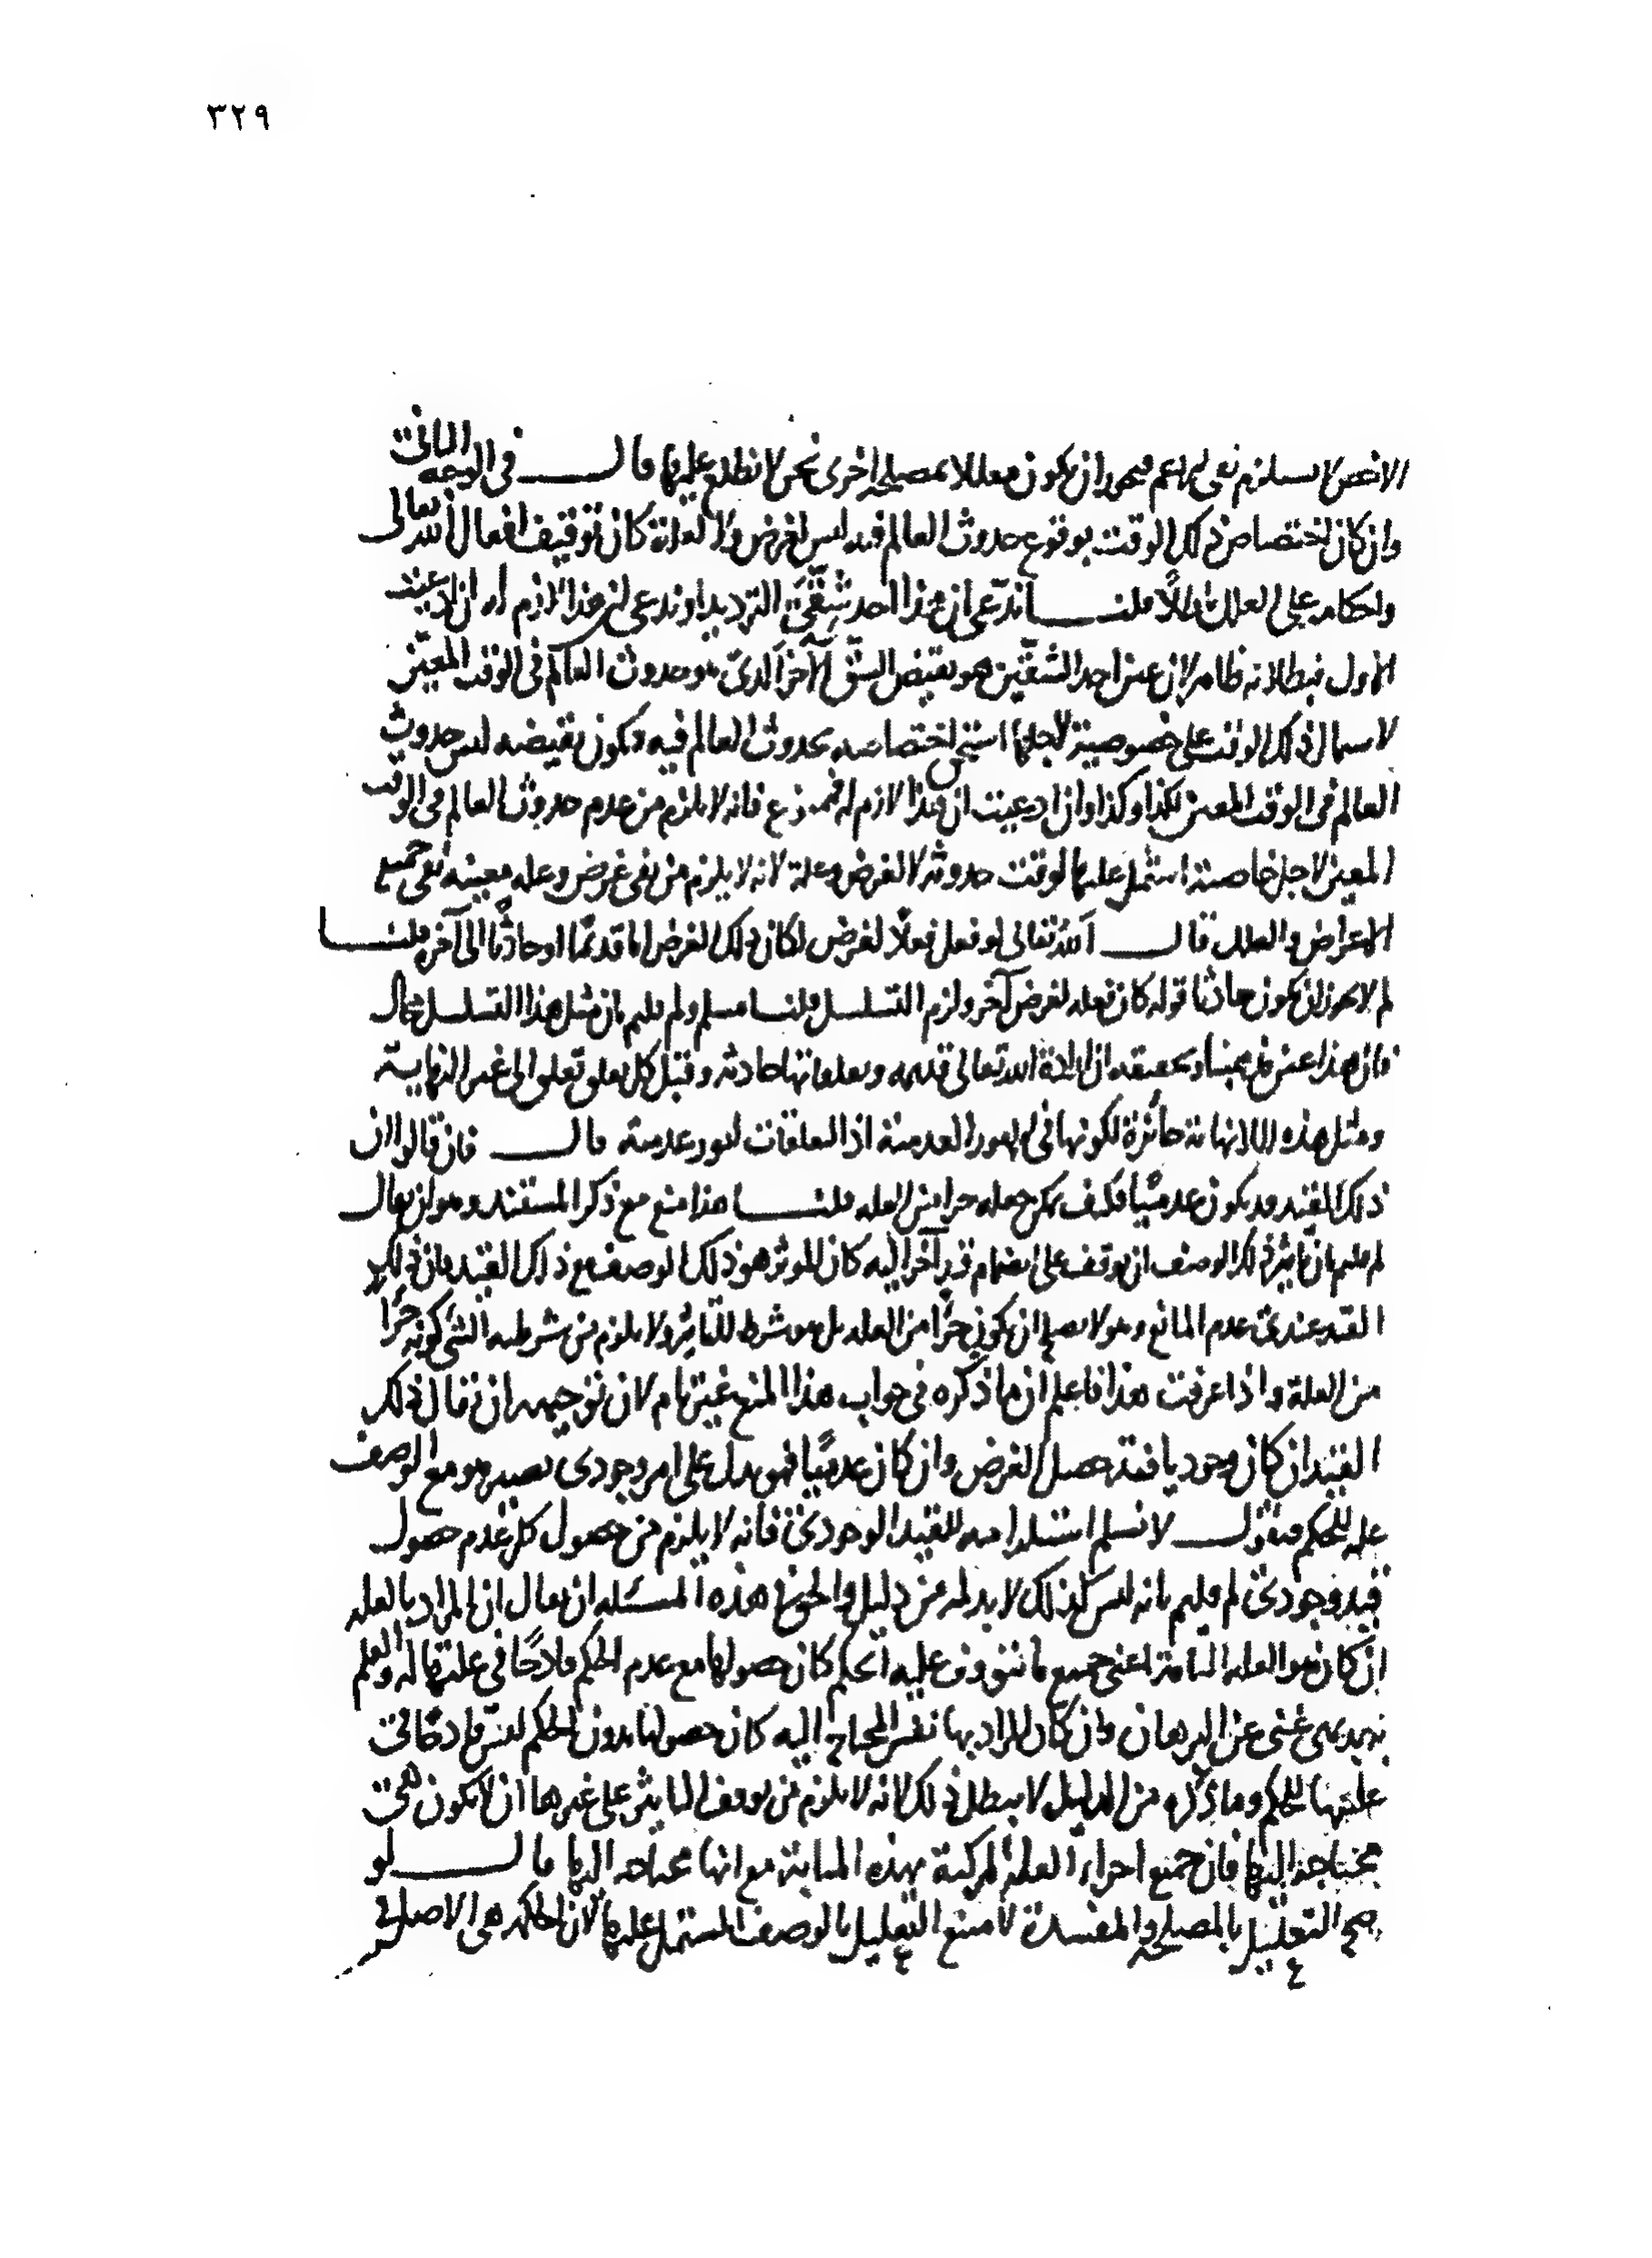 ٣٢٩
الاخص لا يستلزم نفى الاعم فيجوز ان يكون معللا بمصلحة اخرى نحن لا نطلع عليها قال فى الوجه الثانى
وان كان اختصاص ذلك الوقت بوقوع حدوث العالم فيه ليس لغرض ولا لعلة كان توقيف افعال الله تعالى
واحكامه على العلل باطلًا قلنا اتدّعى ان هذا احد شقّى الترديد او تدعى ان هذا لازم له ان ادعيت
الاول فبطلانه ظاهر لان عين احد الشقّين هو نقيض الشق الآخر الذى هو حدوث العالم فى الوقت المعيّن
لاشتمال ذلك الوقت على خصوصية لاجلها استحق اختصاصه بحدوث العالم فيه ويكون نقيضه ليس حدوث
العالم فى الوقت المعين لكذا وكذا وان ادعيت ان هذا لازم له فممنوع فانه لا يلزم من عدم حدوث العالم فى الوقت
المعين لاجل خاصية اشتمل عليها الوقت حدوثه لا لغرض وعلة لانه لا يلزم من نفى غرض وعله معينه نفى جميع
الاغراض والعلل قال الله تعالى لو فعل فعلًا لغرض لكان ذلك الغرض اما قديمًا او حادثا الى آخره قلنا
لم لا يجوز ان يكون حادثا قوله كان فعله لغرض آخر ولزم التسلسل قلنا مسلم ولم قلتم بان مثل هذا التسلسل محال
فان هذا عين ما بحثنا وتحقيقه ان ارادة الله تعالى قديمه وتعلقاتها حادثه وقبل كل تعلق تعلق الى غير النهاية
ومثل هذه اللانهاية جائزة لكونها فى الامور العدمية اذ التعلقات امور عدمية قال فان قالوا ان
ذلك القيد قد يكون عدميّا فكيف يمكن جعله جزا من العله قلنا هذا منع مع ذكر المستند وهو ان يقال
لم قلتم بان تاثير ذلك الوصف ان توقف على انضمام قيد آخر اليه كان المؤثر هو ذلك الوصف مع ذلك القيد فان ذلك
القيد عندى عدم المانع وهو لا يصلح ان يكون جزًا من العله بل هو شرط للتاثير ولا يلزم من شرطيه الشئ كونه جزًا
من العلة واذا عرفت هذا فاعلم ان ما ذكره فى جواب هذا المنع غير تام لان توجيهه ان يقال ذلك
القيد ان كان وجوديا فقد حصل الغرض وان كان عدميًا فهو يدل على امر وجودى يصير هو مع الوصف
عله للحكم فنقول لا نسلم استلزامه للقيد الوجودى فانه لا يلزم من حصول كل عدم حصول
قيد وجودى لم قلتم بانه ليس كذلك لا بد له من دليل والحق فى هذه المسئله ان يقال ان المراد بالعله
ان كان هو العله التامة اعنى جميع ما يتوقف عليه الحكم كان حصولها مع عدم الحكم قادحًا فى علتها له والعلم
به بديهى غنى عن البرهان وان كان المراد بها نفس المحتاج اليه كان حصولها بدون الحكم ليس قادحًا فى
عليتها للحكم وما ذكره من الدليل لا يبطل ذلك لانه لا يلزم من توقف التاثير على غيرها ان لا يكون هى
محتاجة اليها فان جميع اجزاء العلة المركبة بهذه المثابة مع انها محتاجه اليها قال لو
صح التعليل بالمصلحة والمفسدة لامتنع التعليل بالوصف المشتمل عليها لان الحكمه هى الاصل فى